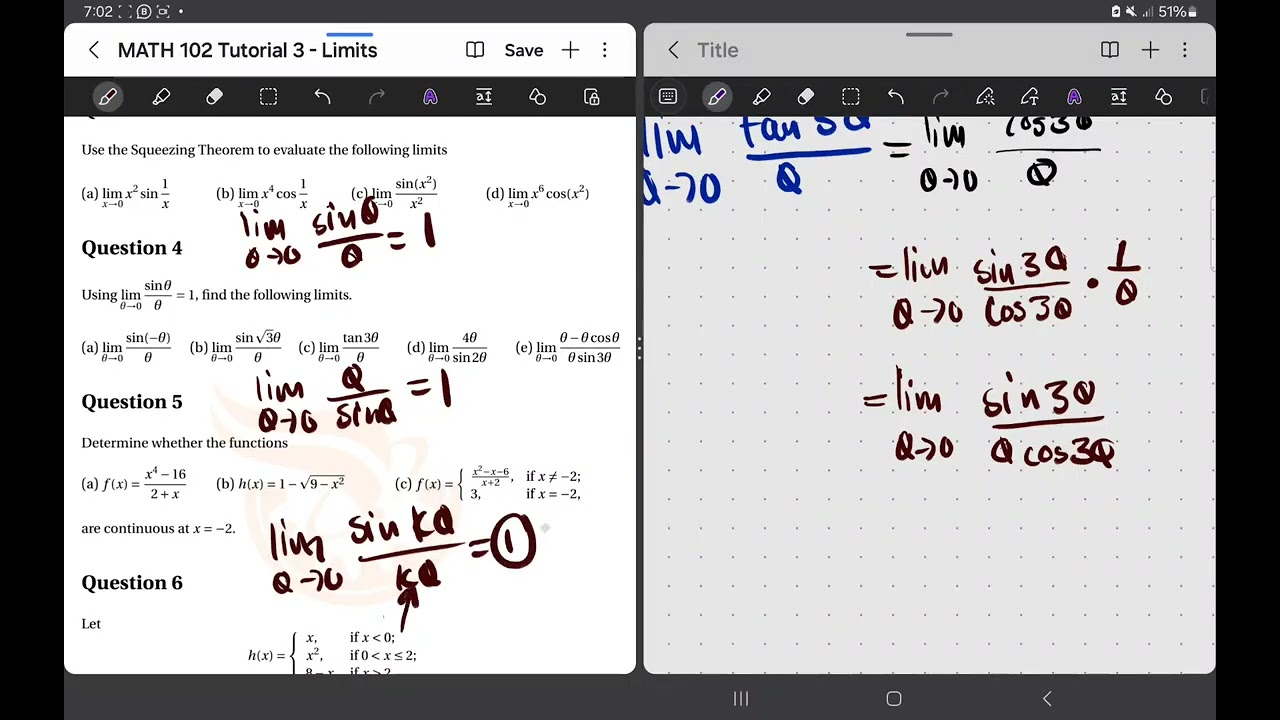 7:02 51%
MATH 102 Tutorial 3 - Limits Save
Use the Squeezing Theorem to evaluate the following limits
(a) lim x→0 x² sin 1/x (b) lim x→0 x⁴ cos 1/x (c) lim x→0 sin(x²)/x² (d) lim x→0 x⁶ cos(x²)
lim θ→0 sinθ/θ = 1
Question 4
Using lim θ→0 sinθ/θ = 1, find the following limits.
(a) lim θ→0 sin(−θ)/θ (b) lim θ→0 sin √3θ/θ (c) lim θ→0 tan3θ/θ (d) lim θ→0 4θ/sin2θ (e) lim θ→0 θ−θcosθ/θ sin3θ
lim θ→0 θ/sinθ = 1
Question 5
Determine whether the functions
(a) f(x) = x⁴−16/2+x (b) h(x) = 1−√9−x² (c) f(x) = { x²−x−6/x+2, if x ≠ −2;
3, if x = −2,
are continuous at x = −2.
lim θ→0 sin kθ/kθ = 1
Question 6
Let
h(x) = { x, if x < 0;
x², if 0 < x ≤ 2;
8−x, if x > 2
Title
lim θ→0 tan 3θ/θ = lim θ→0 cos3θ/θ
= lim θ→0 sin3θ/cos3θ · 1/θ
= lim θ→0 sin3θ/θ cos3θ